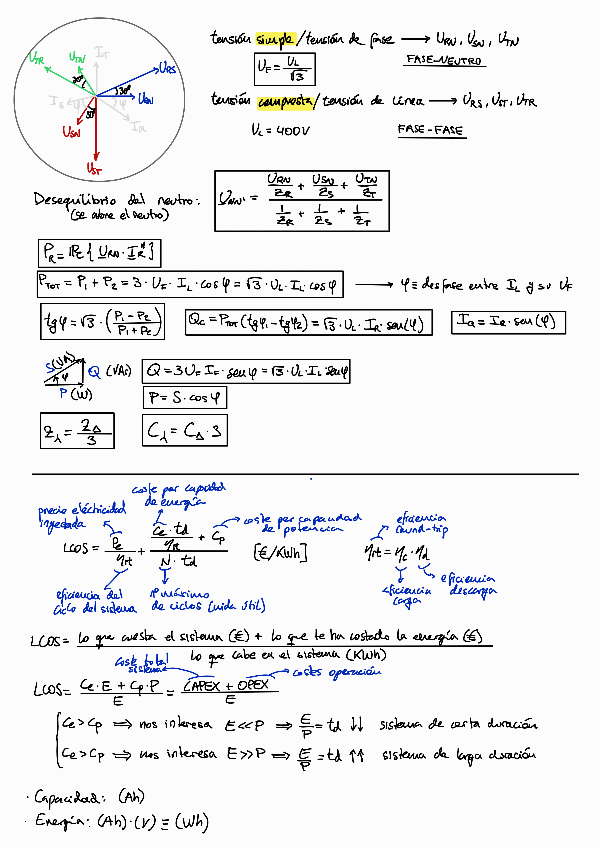 U_TR U_TN I_T U_RS
30° 30°
I_S φ φ U_RN
U_SN 30° I_R
U_ST
tensión simple/tensión de fase → U_RN, U_SN, U_TN
U_F = U_L/√3 FASE-NEUTRO
tensión compuesta/tensión de línea → U_RS, U_ST, U_TR
U_L = 400V FASE-FASE
Desequilibrio del neutro: U_NN' = (U_RN/Z_R + U_SN/Z_S + U_TN/Z_T)/(1/Z_R + 1/Z_S + 1/Z_T)
(se abre el neutro)
P_R = Re{U_RN · I_R*}
P_TOT = P_1 + P_2 = 3 · U_F · I_L · cosφ = √3 · U_L · I_L · cosφ → φ ≡ desfase entre I_L y su U_F
tgφ = √3 · (P_1 - P_2 / P_1 + P_2) Q_C = P_TOT (tgφ_1 - tgφ_2) = √3 · U_L · I_R · sen(φ) I_Q = I_R · sen(φ)
S(VA) φ Q (VAr) P(W) Q = 3 U_F I_F · senφ = √3 · U_L · I_L senφ
P = S · cosφ
Z_⅄ = Z_Δ/3 C_⅄ = C_Δ · 3
coste por capacidad
de energía
precio eléctricidad
inyectada
coste por capacidad
de potencia
eficiencia
round-trip
LCOS = P_e/η_rt + (C_e · t_d/η_rt + C_p)/(N · t_d) [€/KWh] η_rt = η_c · η_d
eficiencia del
ciclo del sistema
nº máximo
de ciclos (vida útil)
eficiencia
carga
eficiencia
descarga
LCOS = lo que cuesta el sistema (€) + lo que te ha costado la energía (€)
lo que cabe en el sistema (KWh)
coste total
sistema
costes operación
LCOS = C_e · E + C_p · P / E = CAPEX + OPEX / E
C_e > C_p ⟹ nos interesa E << P ⟹ E/P = t_d ↓↓ sistema de corta duración
C_e > C_p ⟹ nos interesa E >> P ⟹ E/P = t_d ↑↑ sistema de larga duración
· Capacidad: (Ah)
· Energía: (Ah) · (V) ≡ (Wh)